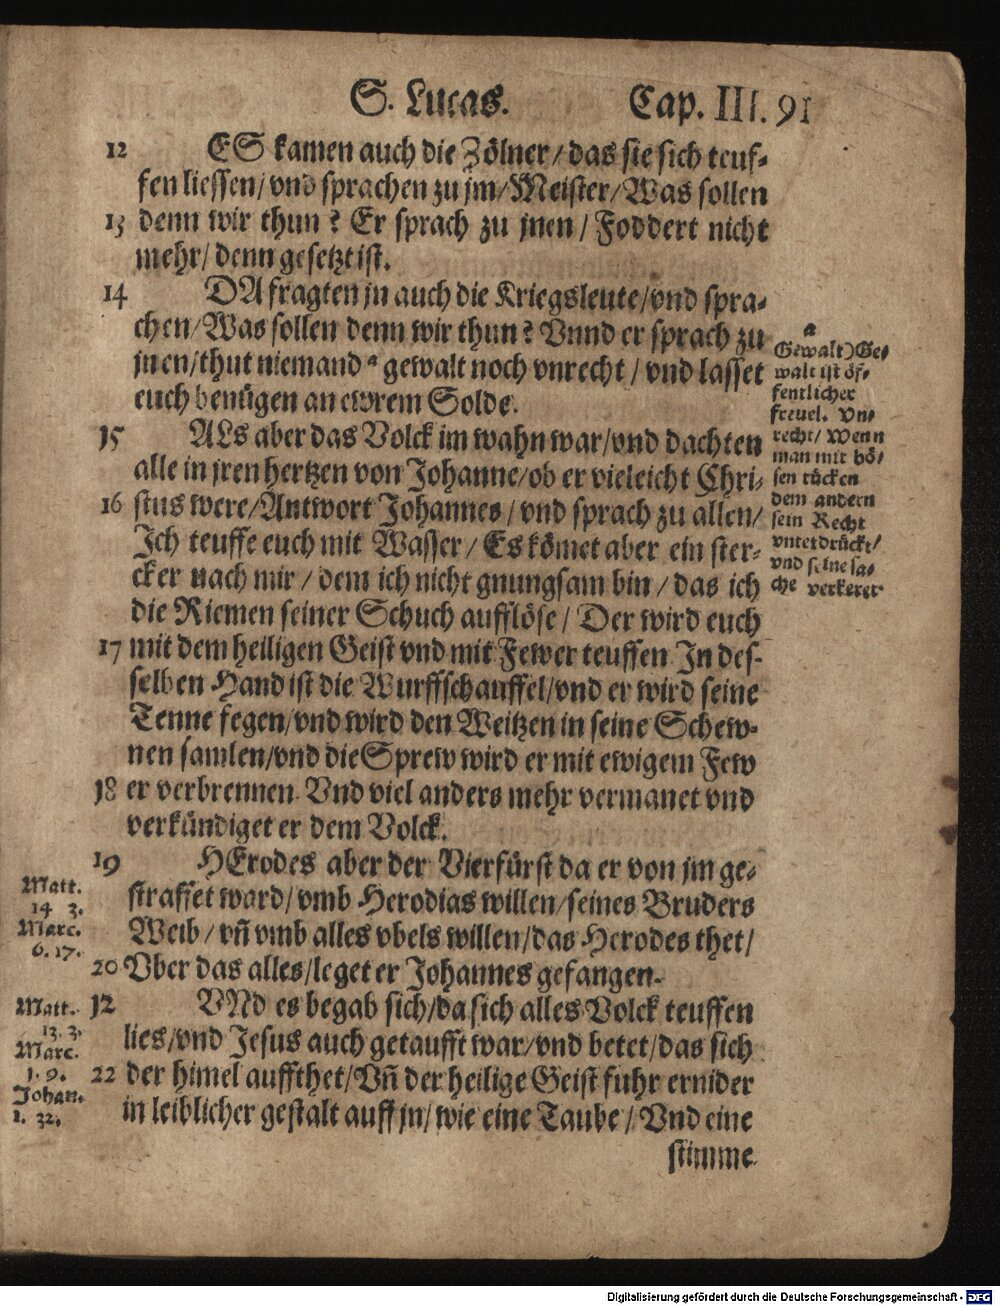 S. Lucas. Cap. III. 91
12 ES kamen auch die Zölner/das sie sich teuf-
fen liessen/vnd sprachen zu jm/Meister/Was sollen
13 denn wir thun? Er sprach zu jnen/Foddert nicht
mehr/denn gesetzt ist.
14 DA fragten jn auch die Kriegsleute/vnd spra-
chen/Was sollen denn wir thun? Vnnd er sprach zu
jnen/thut niemand a gewalt noch vnrecht/vnd lasset
euch benügen an ewrem Solde.
15 ALs aber das Volck im wahn war/vnd dachten
alle in jren hertzen von Johanne/ob er vieleicht Chri-
16 stus were/Antwort Johannes/vnd sprach zu allen/
Ich teuffe euch mit Wasser/Es kömet aber ein ster-
cker nach mir/dem ich nicht gnungsam bin/das ich
die Riemen seiner Schuch aufflöse/Der wird euch
17 mit dem heiligen Geist vnd mit Fewer teuffen In des-
selben Hand ist die Wurffschauffel/vnd er wird seine
Tenne fegen/vnd wird den Weitzen in seine Schew-
nen samlen/vnd die Sprew wird er mit ewigem Few
18 er verbrennen. Vnd viel anders mehr vermanet vnd
verkündiget er dem Volck.
19 HErodes aber der Vierfürst da er von jm ge-
straffet ward/vmb Herodias willen/seines Bruders
Weib/vñ vmb alles vbels willen/das Herodes thet/
20 Vber das alles/leget er Johannes gefangen.
12 VNd es begab sich/da sich alles Volck teuffen
lies/vnd Jesus auch getaufft war/vnd betet/das sich
22 der himel auffthet/Vñ der heilige Geist fuhr ernider
in leiblicher gestalt auff jn/wie eine Taube/Vnd eine
stimme
a
Gewalt) Ge-
walt ist öf-
fentlicher
freuel. Vn-
recht/Wenn
man mit bö-
sen tücken
dem andern
sein Recht
vnterdrückt/
vnd seine sa-
che verkeret
Matt.
14 3.
Marc.
6. 17.
Matt.
13. 3.
Marc.
1. 9.
Johan.
1. 32.
Digitalisierung gefördert durch die Deutsche Forschungsgemeinschaft - DFG